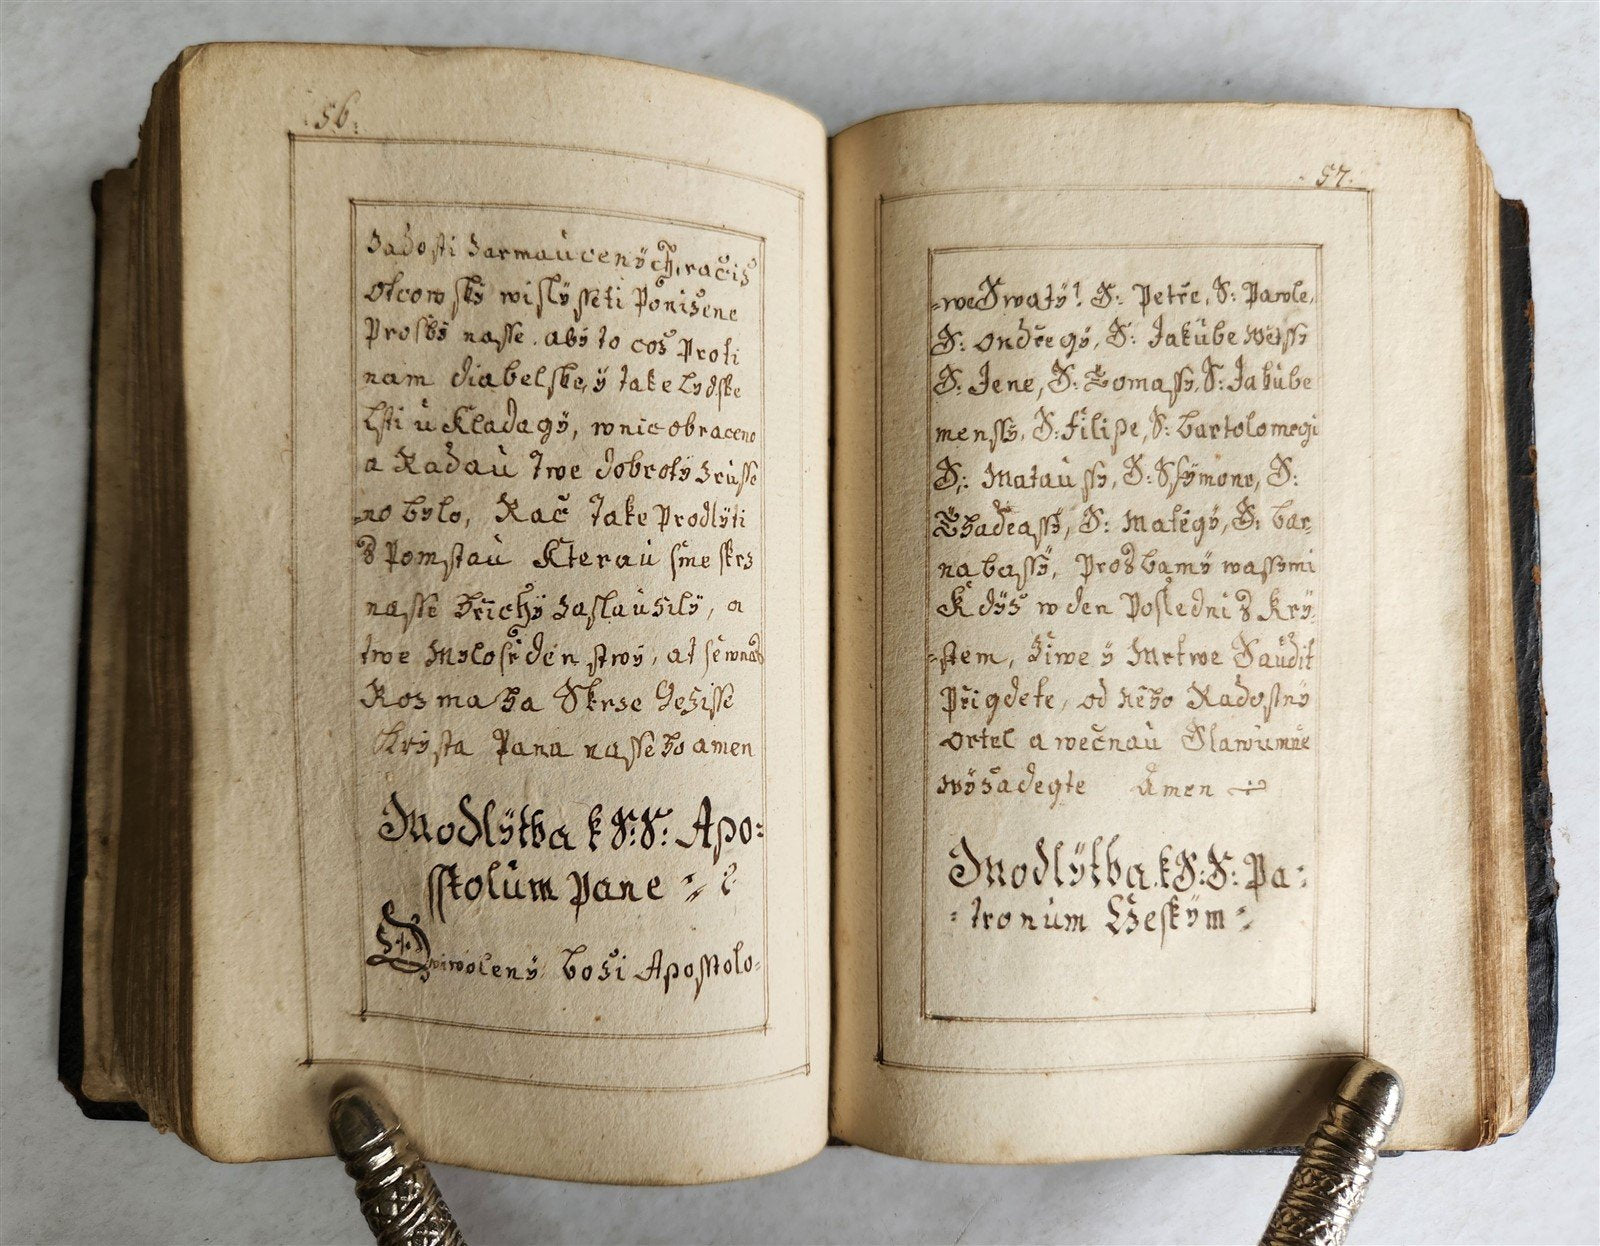 :56:
žadosti zarmaucených, račiž
otcowsky wislysseti Ponižene
Prosby nasse. aby to což Proti
nam diabelske, ÿ take Lydske
Lsti ù Kladagÿ, wnic obraceno
a Radaù twe dobrotÿ zrusse
=no bylo, Rač take Prodlÿti
z Pomstaù Kteraù sme skrz
nasse hřichÿ zaslaužilÿ, a
twe Mylosrdenstwÿ, at se wnas
Rozmaha Skrze Gežisse
Krysta Pana nasseho amen
Modlÿtba k S: S: Apo=
sstolùm Pane
Zwiwolenÿ boži Aposstolo=
:57:
=we Swatÿ! S: Petře, S: Pawle,
S: Ondřegÿ, S: Jakùbe wětssÿ
S: Jene, S: Tomassÿ, S: Jakùbe
menssÿ, S: Filipe, S: bartolomegi
S: Mataùssÿ, S: Ssÿmone, S:
Thadeassÿ, S: Matěgÿ, S: bar=
nabassÿ, Prozbamÿ wassymi
Kdÿž w den Posledni z Krÿ=
=stem, žiwe ÿ Mrtwe Saudit
Přigdete, od něho Radostnÿ
ortel a wečnaù Slawu mne
wÿžadegte Amen
Modlÿtba k S: S: Pa=
=tronùm Českÿm